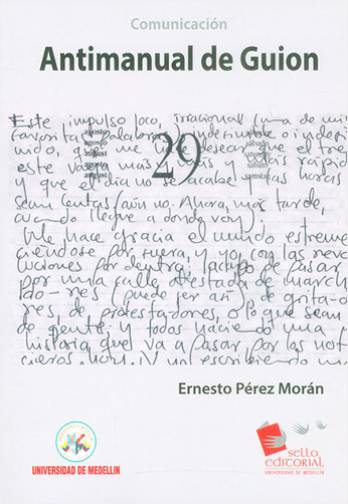 Comunicación
Antimanual de Guion
Este impulso loco, irracional (una de mis
favoritas palabras), indecible o indefi
nido, que me hace desear que el tren
este vaya más y más rápido
y que el día no se acabe y las horas
sean lentas (aún no. Ahora, más tarde,
cuando llegue a donde voy).
Me hace gracia el mundo estreme
ciéndose por fuera, y yo, con las revo
luciones por dentro,
por una calle atestada de march
(puede ser
res, de protestadores, o lo que sean
de gente; y todos haciendo una
historia que va a pasar por las not
29
Ernesto Pérez Morán
UNIVERSIDAD DE MEDELLIN
sello
EDITORIAL
UNIVERSIDAD DE MEDELLIN